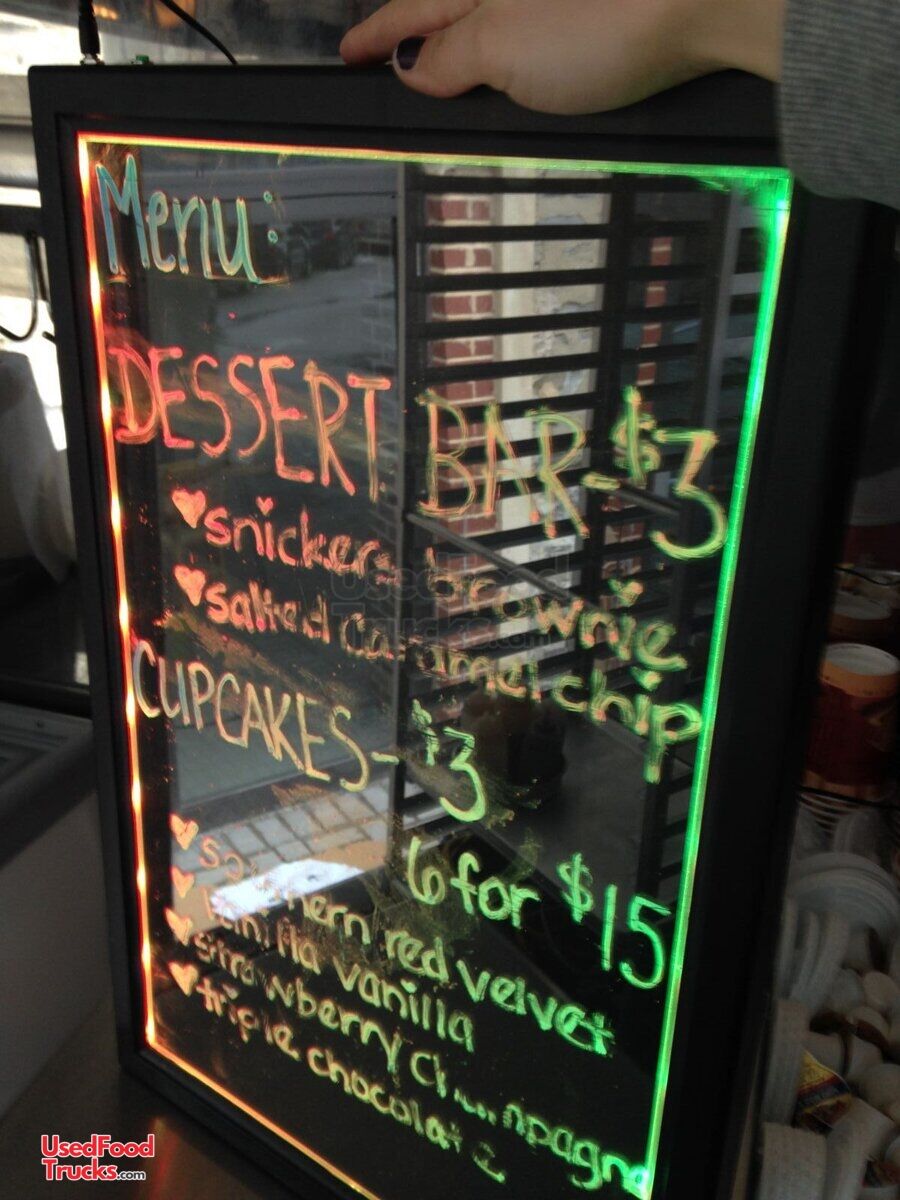 Menu:
DESSERT BAR-$3
snickers brownie
salted caramel chip
CUPCAKES-$3
6 for $15
southern red velvet
vanilla vanilla
strawberry champagne
triple chocolate
UsedFood
Trucks.com
UsedFood
Trucks.com